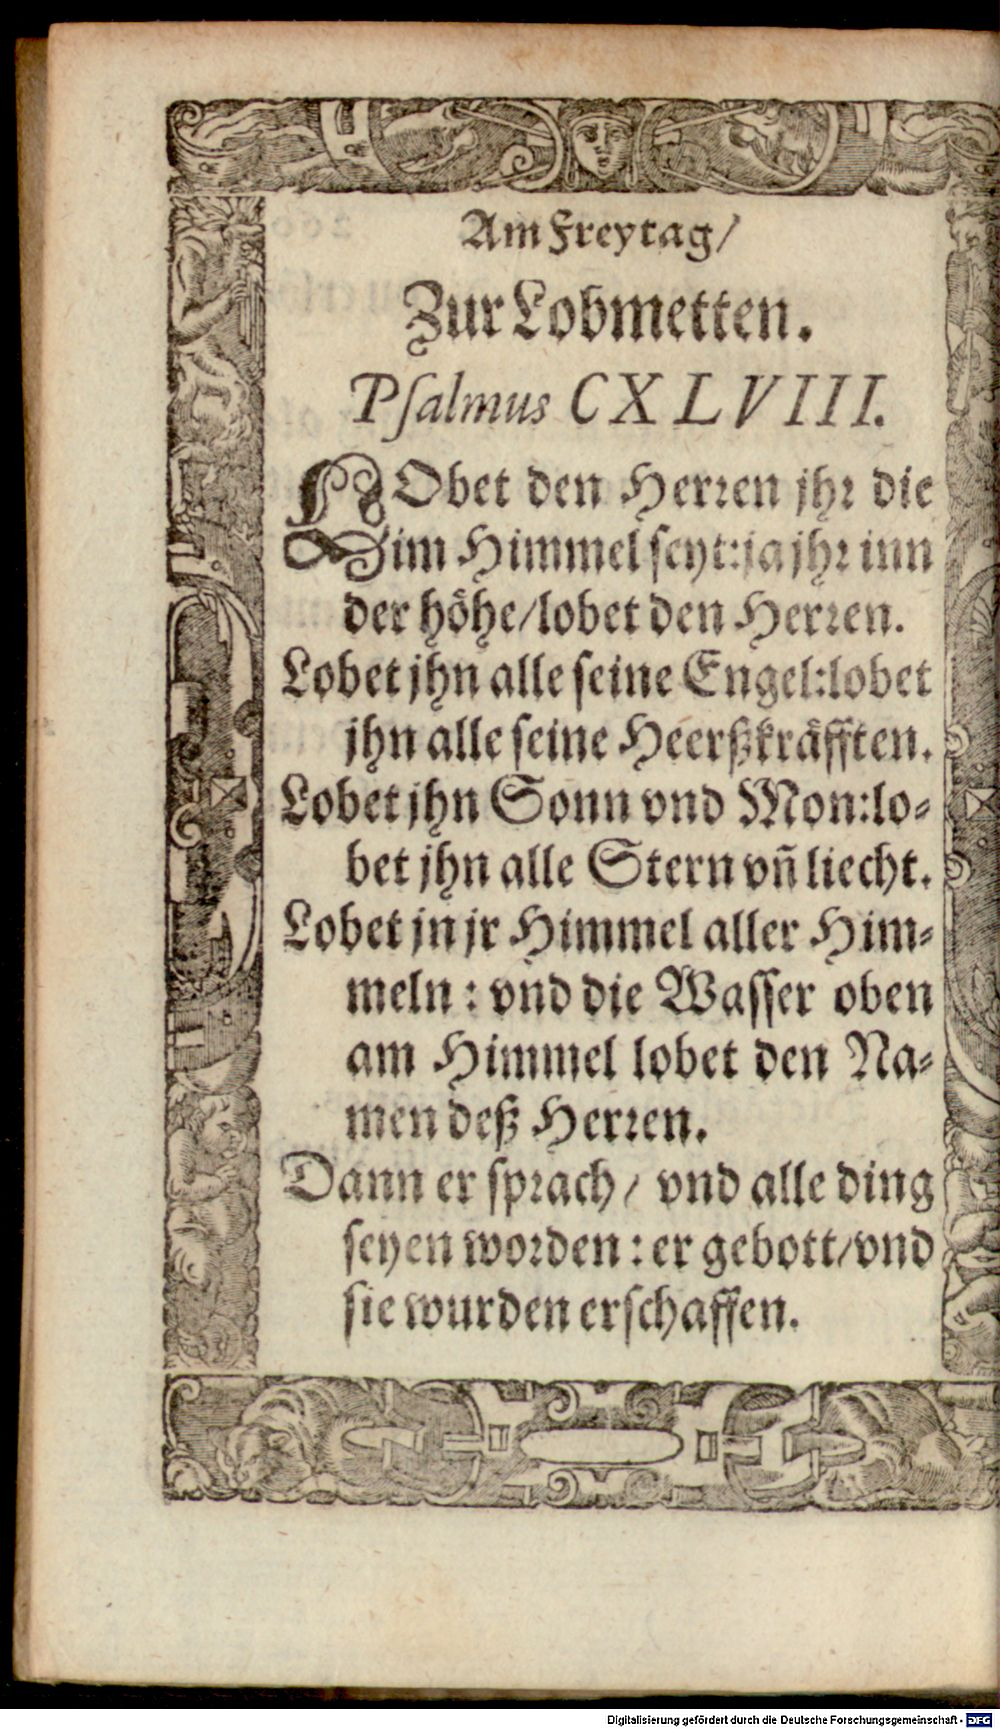 Am Freytag/
Zur Lobmetten.
Pſalmus CXLVIII.
LObet den Herꝛen jhꝛ die
im Himmel ſeyt: ja jhꝛ inn
der höhe/ lobet den Herꝛen.
Lobet jhn alle ſeine Engel: lobet
jhn alle ſeine Heerßkräfften.
Lobet jhn Sonn vnd Mon: lo⸗
bet jhn alle Stern vn̄ liecht.
Lobet jn jr Himmel aller Him⸗
meln : vnd die Waſſer oben
am Himmel lobet den Na⸗
men deß Herꝛen.
Dann er ſpꝛach/ vnd alle ding
ſeyen woꝛden : er gebott/ vnd
ſie wurden erſchaffen.
Digitalisierung gefördert durch die Deutsche Forschungsgemeinschaft - DFG